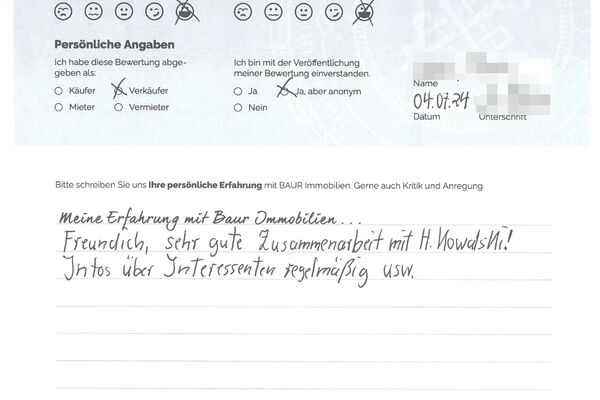 Persönliche Angaben
Ich habe diese Bewertung abge-
geben als:
Käufer Verkäufer
Mieter Vermieter
Ich bin mit der Veröffentlichung
meiner Bewertung einverstanden.
Ja Ja, aber anonym
Nein
Name
04.07.24
Datum Unterschrift
Bitte schreiben Sie uns Ihre persönliche Erfahrung mit BAUR Immobilien. Gerne auch Kritik und Anregung.
Meine Erfahrung mit Baur Immobilien...
Freundich, sehr gute Zusammenarbeit mit H. Kowalski!
Infos über Interessenten regelmäßig usw.